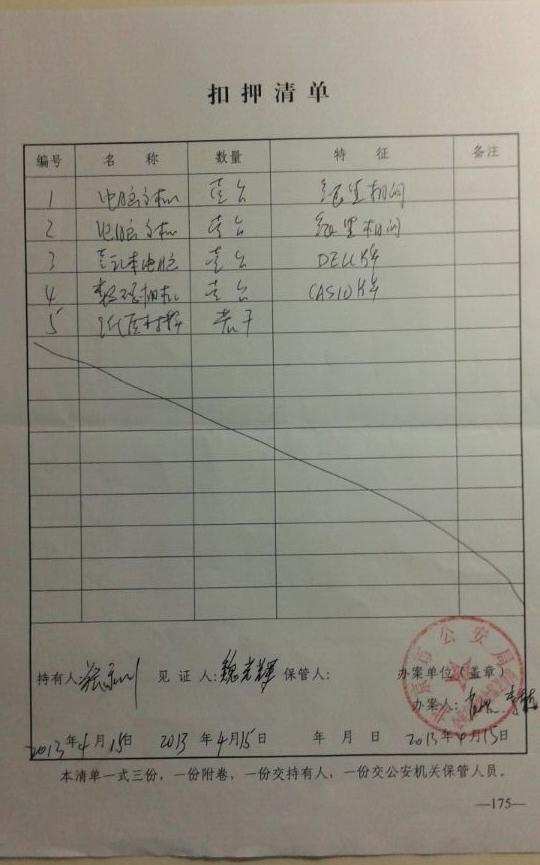 扣押清单
编号 名称 数量 特征 备注
1 电脑主机 壹台 红黑相间
2 电脑主机 壹台 红黑相间
3 笔记本电脑 壹台 DELL牌
4 数码相机 壹台 CASIO牌
5 纸质材料 若干
持有人: 见证人:魏光辉 保管人: 办案单位(盖章)
公安局
办案人:
2013年4月15日 2013年4月15日 年 月 日 2013年4月15日
本清单一式三份,一份附卷,一份交持有人,一份交公安机关保管人员。
—175—